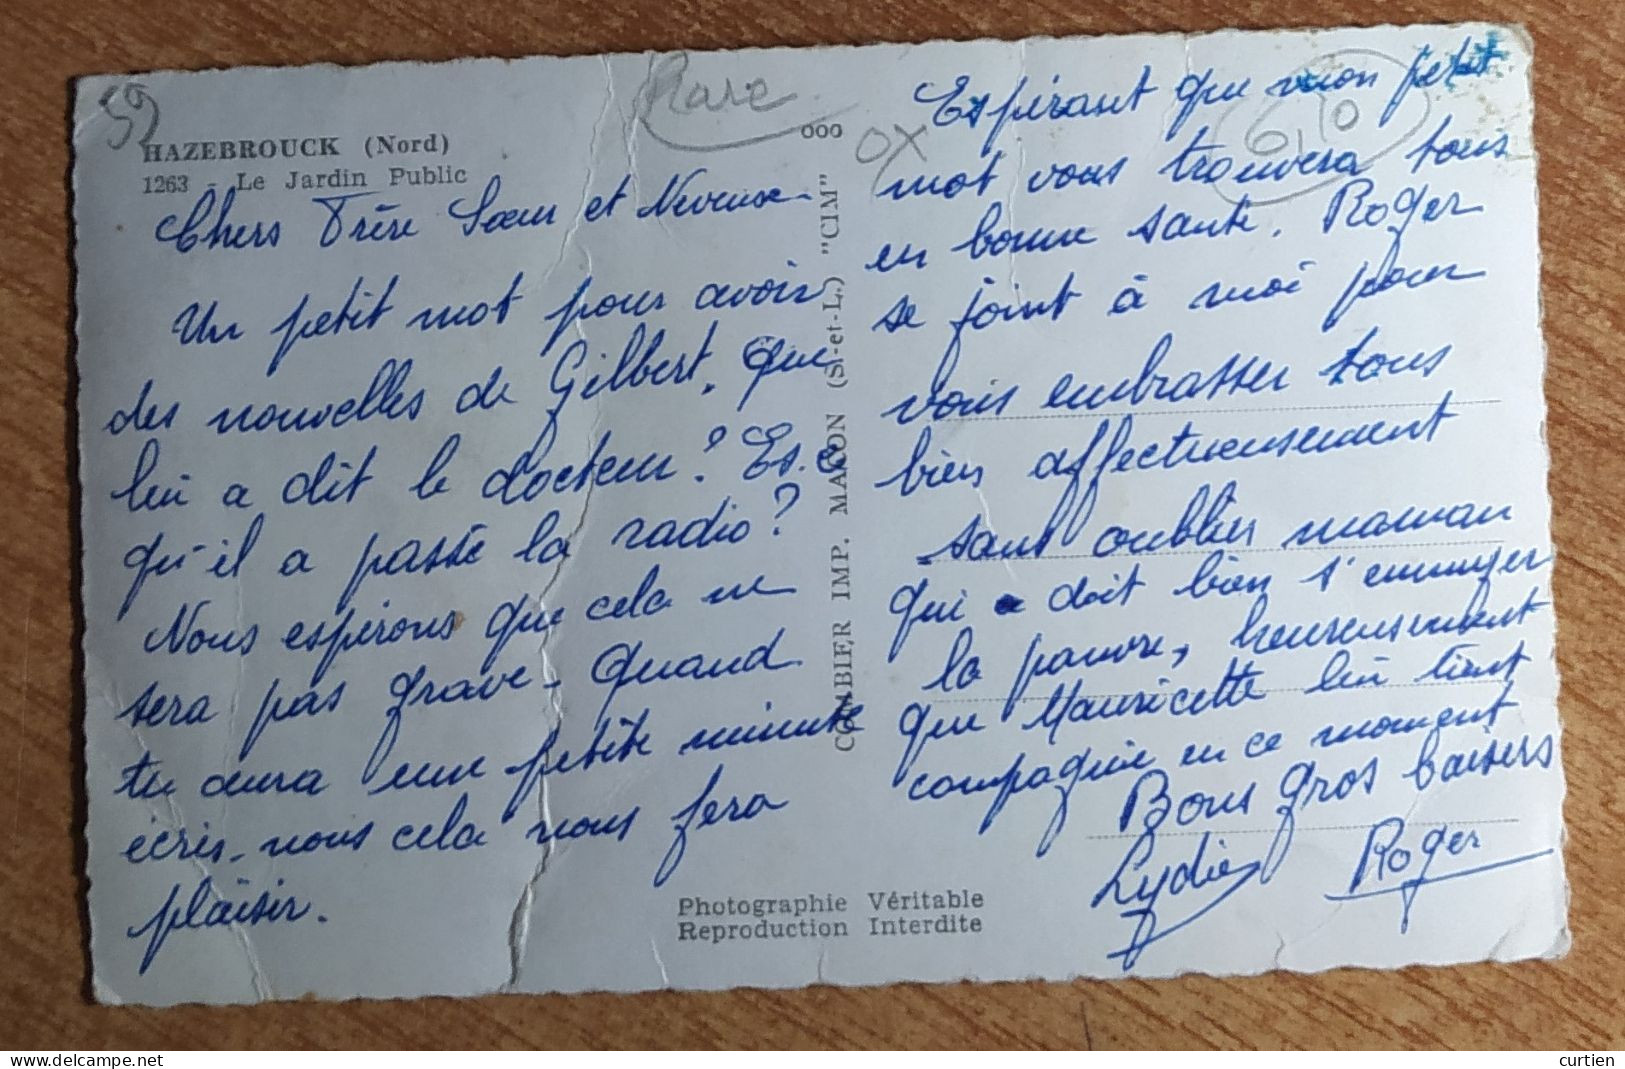 59
Rare
HAZEBROUCK (Nord)
1263 - Le Jardin Public
Chers Frère Sœur et Neveux -
Un petit mot pour avoir
des nouvelles de Gilbert, que
lui a dit le docteur ? Es.ce
qu'il a passé la radio ?
Nous espérons que cela ne
sera pas grave - Quand
tu aura une petite minute
écris-nous cela nous fera
plaisir.
COMBIER IMP. MACON (S.-et-L.) "CIM"
ooo
OX
6,10
Espérant que mon petit
mot vous trouvera tous
en bonne santé. Roger
se joint à moi pour
vous embrasser tous
bien affectueusement
sans oublier maman
qui doit bien s'ennuyer
la pauvre, heureusement
que Mauricette lui tient
compagnie en ce moment
Bons gros baisers
Lydie Roger
Photographie Véritable
Reproduction Interdite
© delcampe.net
curtien